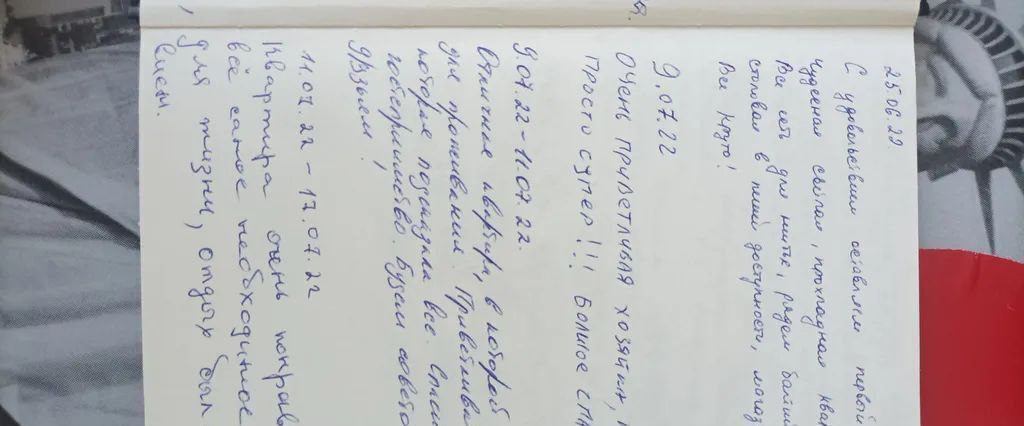 25.06.22.
С удовольствием оставляем первый
Чудесная светлая, прохладная квар
Все есть для жизни, рядом
столовая в пешей доступности, магаз
Все Круто!
9.07.22
Очень приветливая хозяйка,
Просто супер!!! Большое спа
9.07.22-11.07.22.
Отличная квартира, в которой
для проживания. Приветлива
которые подсказали все. Спаси
гостеприимство. Будем совето
друзьям!
11.07.22-17.07.22
Квартира очень понрав
всё самое необходимое
для жизни, отдых был